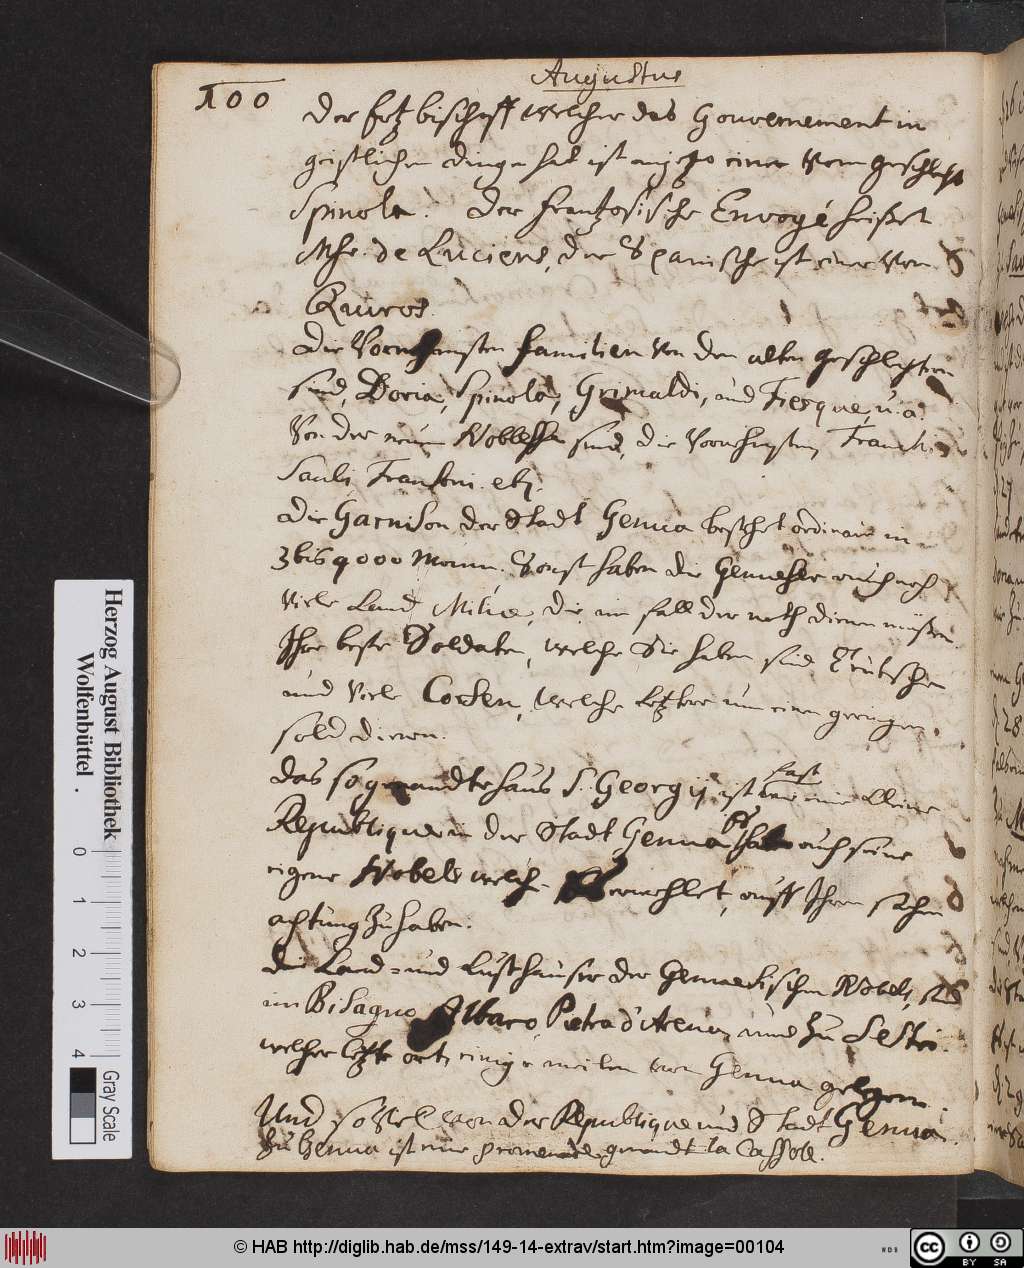 Augustus
100
Der Ertzbischoff welcher das Gouvernement in
geistlichen dingen hat ist anjetzo einer vom geschlecht
Spinola. Der Frantzösische Envoyé heißet
Mhr. de Luciens, der Spanische ist einer von
Quiros.
Die Vornehmsten Familien von den alten geschlechtern
sind, Doria, Spinola, Grimaldi, und Fiesque, u. a.
Von der neuen Noblesse sind, die Vornehmsten,
Sauli, Fransoni. etz.
Die Garnison der Stadt Genua bestehet ordinair in
3 bis 4000 Mann. Sonst haben die Genueser auch noch
viele Land Militie, die im fall der noth dienen müßen
Ihre beste Soldaten, welche Sie haben sind Teutsche
und viele Corsen, welche letztere um einen geringen
sold dienen.
Das so genandte haus S. Georgij ist fast wie eine kleine
Republique in der Stadt Genua, Es hat auch seine
eigene Nobels welche erwehlet, auff Ihre sachen
achtung zu haben.
Die Land- und Lusthäuser der Genuesischen Nobels, sind
im Bisagno, Albaro, Pietra d'Arena, und zu Sestri.
welcher letzte ort, einige meilen von Genua gelegen.
Und so viel von der Republique und Stadt Genua.
Zu Genua ist eine promenade genandt la
Herzog August Bibliothek
Wolfenbüttel
0 1 2 3 4
Gray Scale
© HAB http://diglib.hab.de/mss/149-14-extrav/start.htm?image=00104
cc BY SA